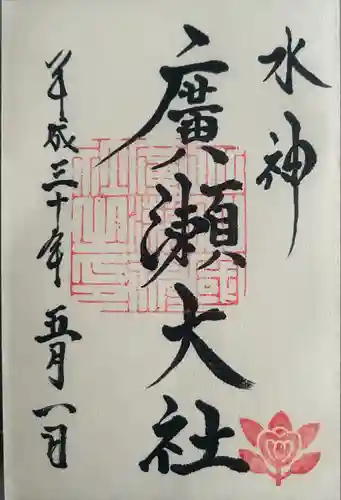 水神
廣瀬大社
平成三十年 五月一日